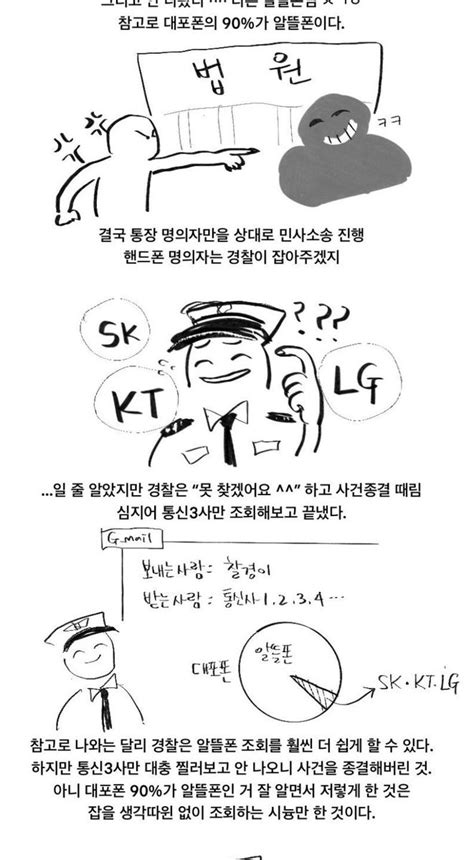 참고로 대포폰의 90%가 알뜰폰이다.
법 원
ㅋㅋ
결국 통장 명의자만을 상대로 민사소송 진행
핸드폰 명의자는 경찰이 잡아주겠지
SK
KT
LG
???
...일 줄 알았지만 경찰은 "못 찾겠어요 ^^" 하고 사건종결 때림
심지어 통신3사만 조회해보고 끝냈다.
G_mail
보내는사람 = 촬경이
받는사람 = 통신사1.2.3.4 ...
대포폰
알뜰폰
SK·KT.LG
참고로 나와는 달리 경찰은 알뜰폰 조회를 훨씬 더 쉽게 할 수 있다.
하지만 통신3사만 대충 찔러보고 안 나오니 사건을 종결해버린 것.
아니 대포폰 90%가 알뜰폰인 거 잘 알면서 저렇게 한 것은
잡을 생각따윈 없이 조회하는 시늉만 한 것이다.